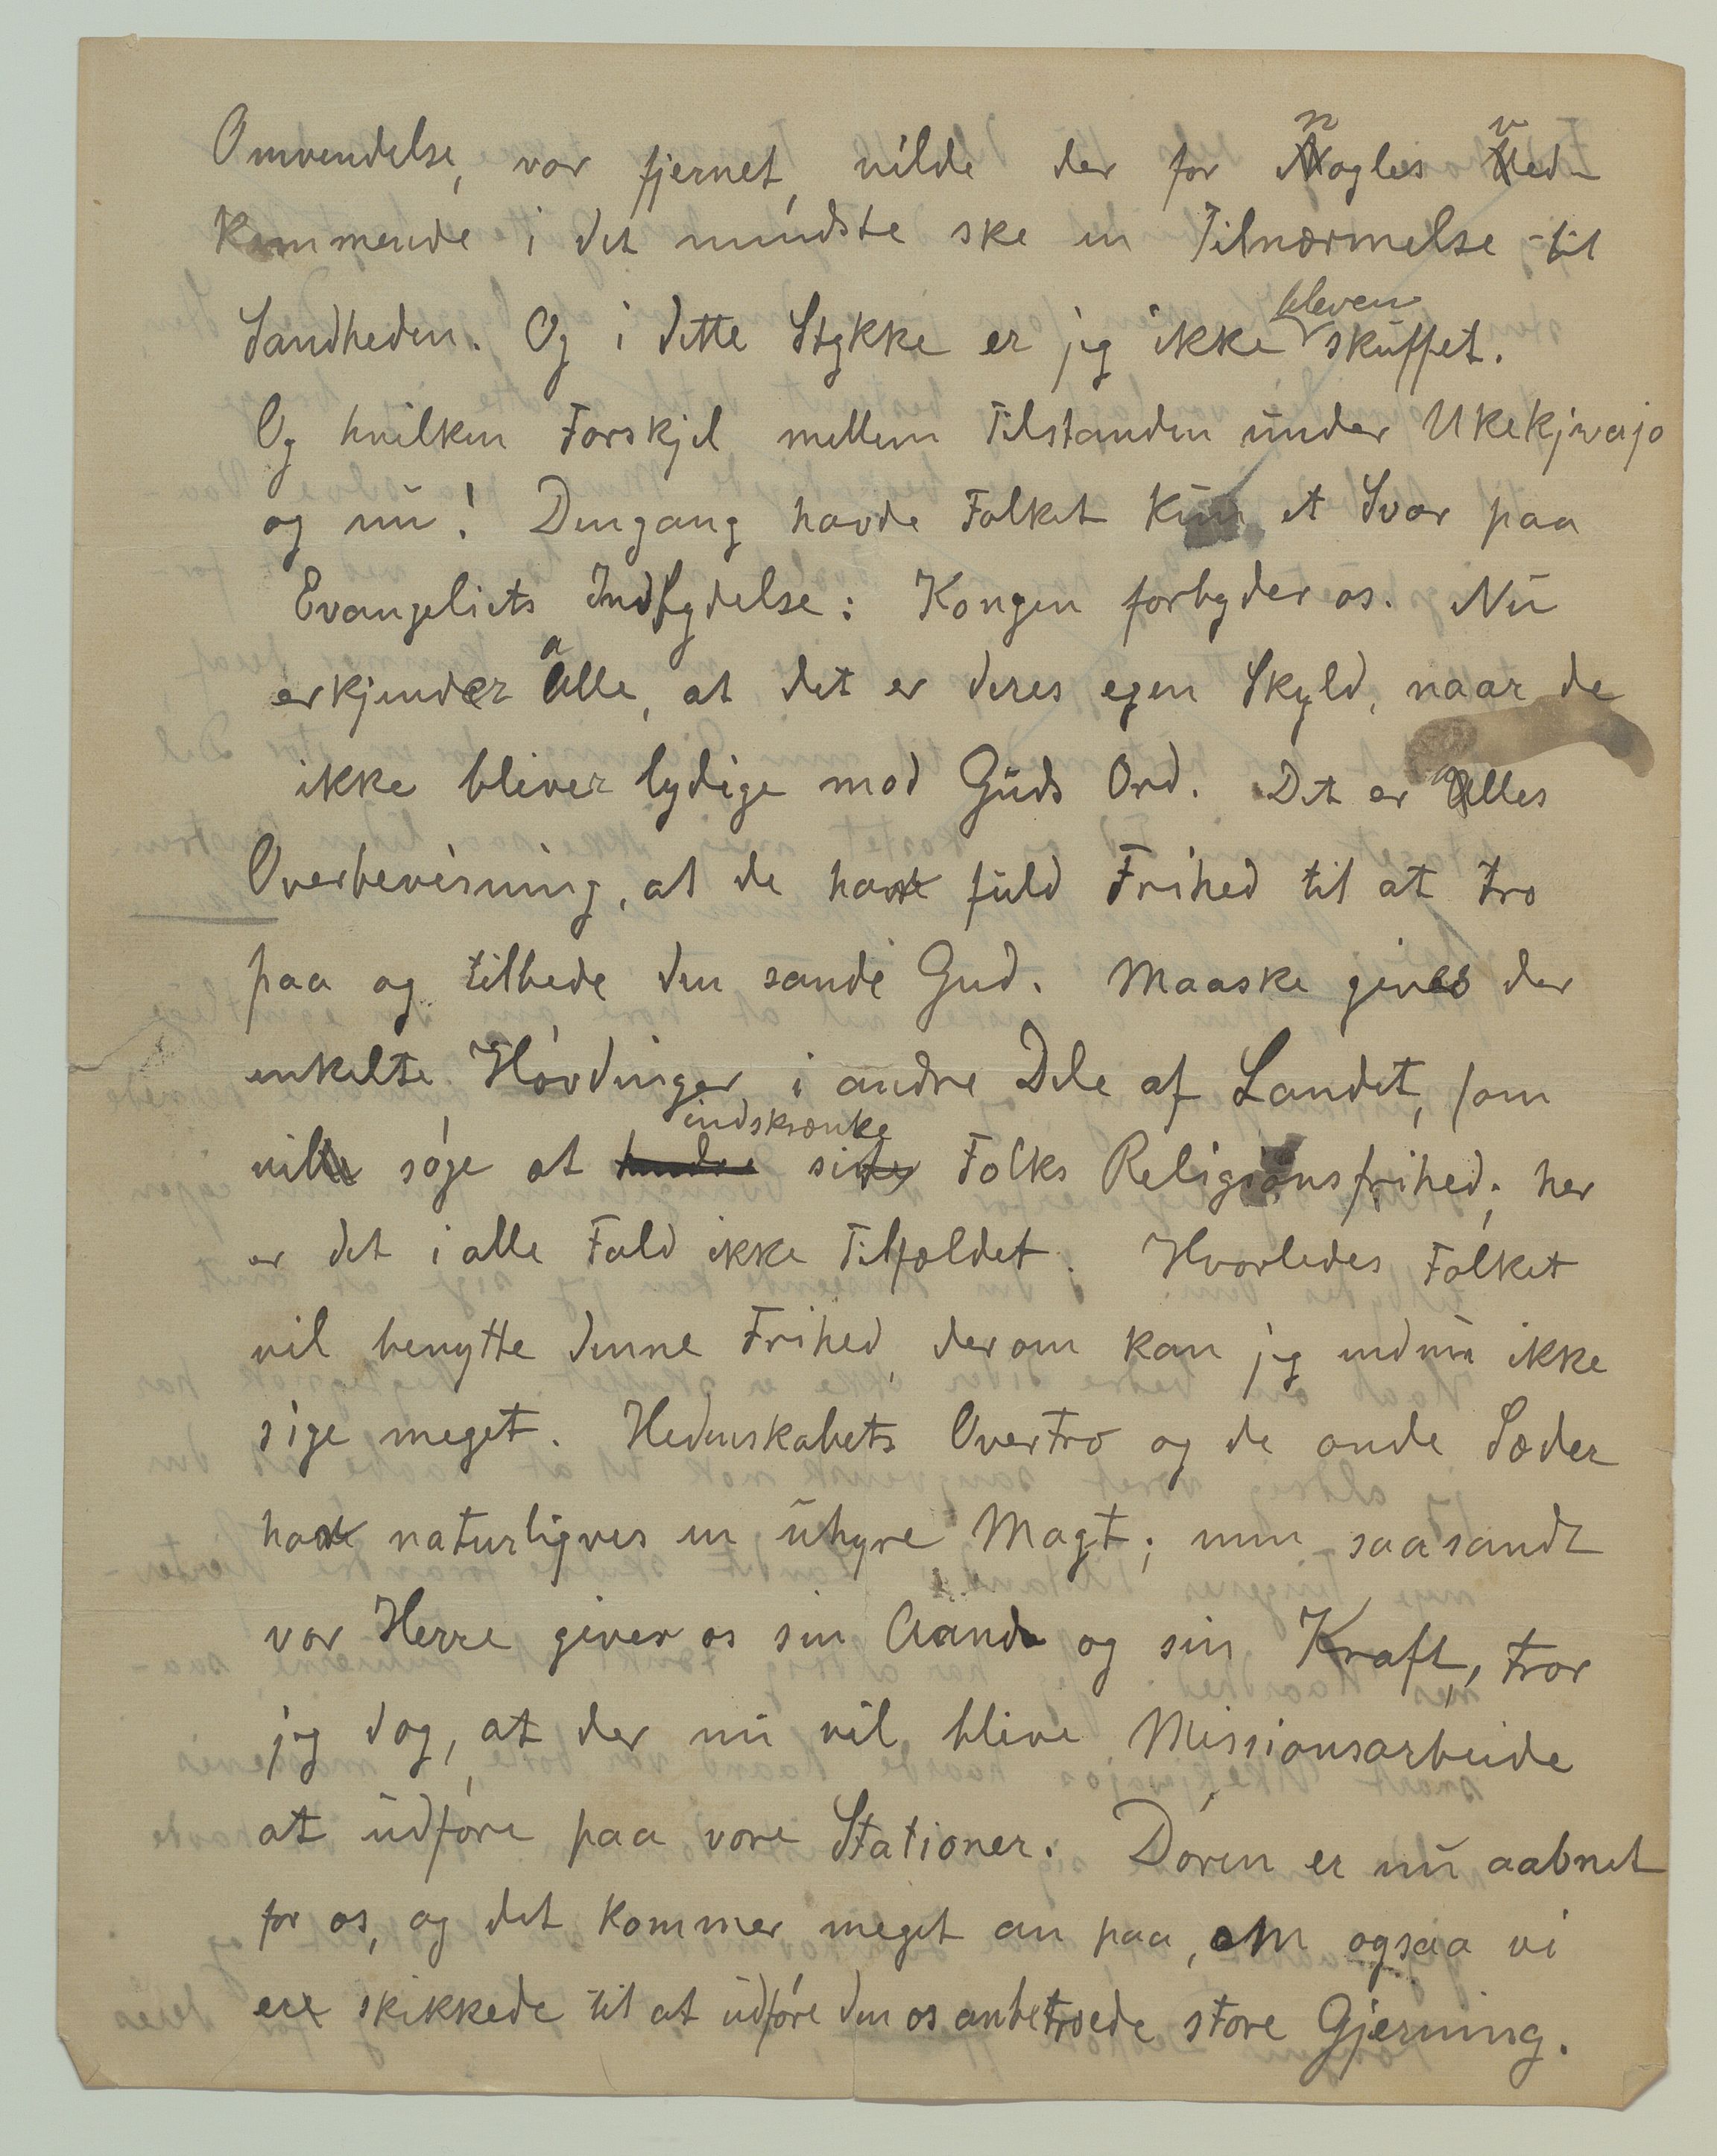 Omvendelse, var fjernet, vilde der for nogles ved-
kommende i det mindste ske en Tilnærmelse til
Sandheden. Og i dette Stykke er jeg ikke bleven skuffet.
Og hvilken Forskjel mellem Tilstanden under Ukekjwajo
og nu! Dengang havde Folket kun et Svar paa
Evangeliets Indbydelse: Kongen forbyder os. Nu
erkjender alle, at det er deres egen Skyld, naar de
ikke bliver lydige mod Guds Ord. Det er alles
Overbevisning, at de har fuld Frihed til at tro
paa og tilbede den sande Gud. Maaske gives der
enkelte Høvdinger i andre Dele af Landet, som
vil søge at hindre indskrænke sit Folks Religionsfrihed; her
er det i alle Fald ikke Tilfældet. Hvorledes Folket
vil benytte denne Frihed, derom kan jeg endnu ikke
sige meget. Hedenskabets Overtro og de onde Sæder
har naturligvis en uhyre Magt; men saasandt
vor Herre giver os sin Aand og sin Kraft, tror
jeg dog, at der nu vil blive Missionsarbeide
at udføre paa vore Stationer. Døren er nu aabnet
for os, og det kommer meget an paa, om ogsaa vi
er skikkede til at udføre den os anbetroede store Gjerning.